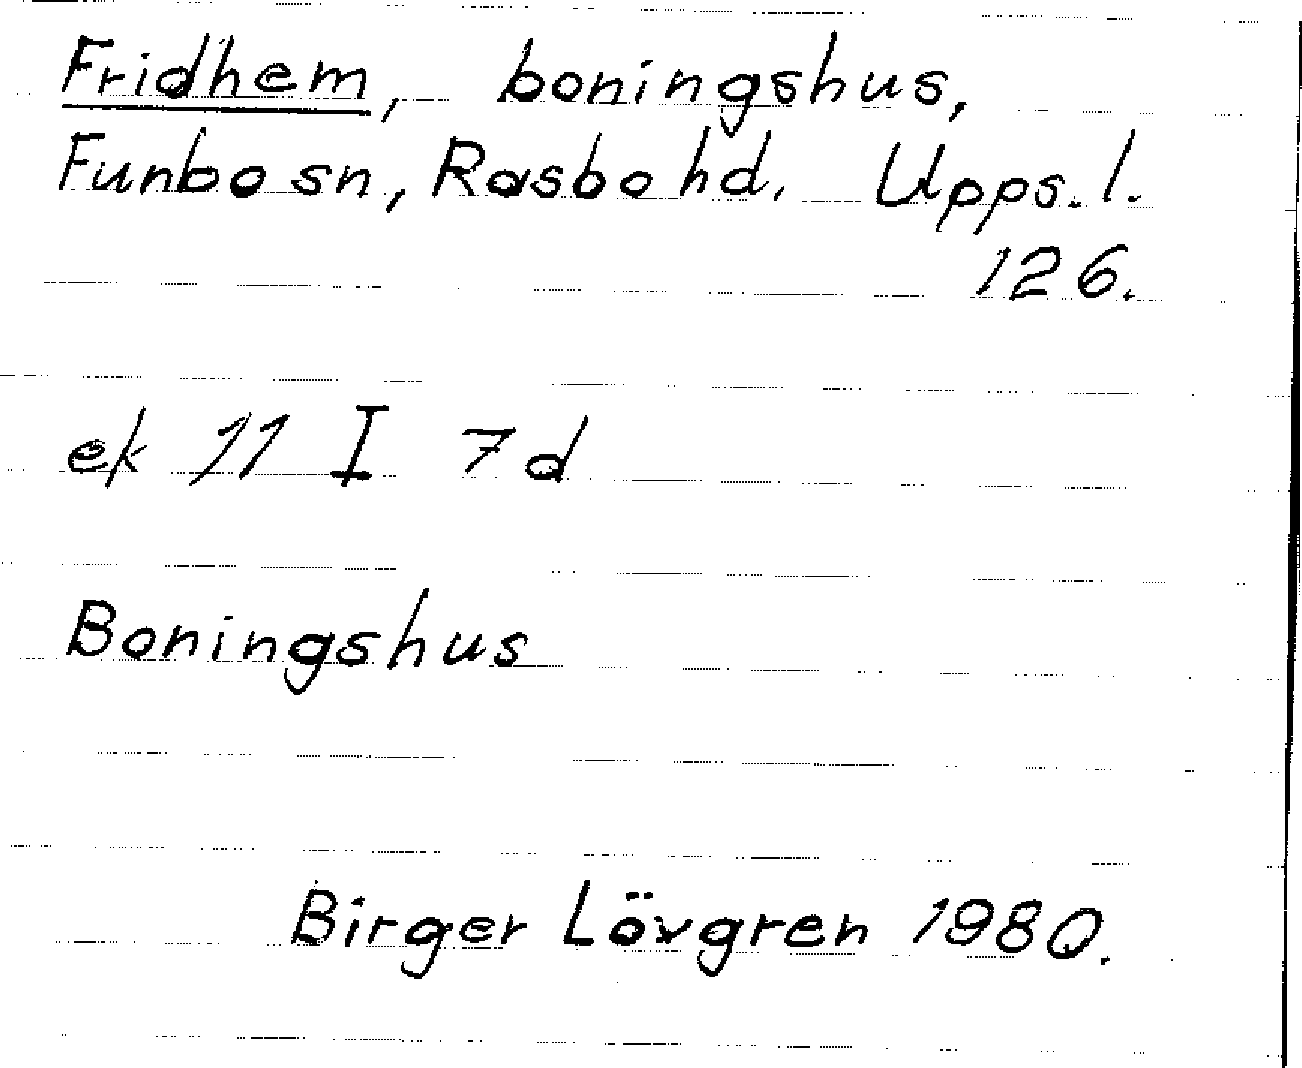 Fridhem, boningshus,
Funbo sn, Rasbo hd, Upps. l.
126.
ek 11 I 7d
Boningshus
Birger Lövgren 1980.